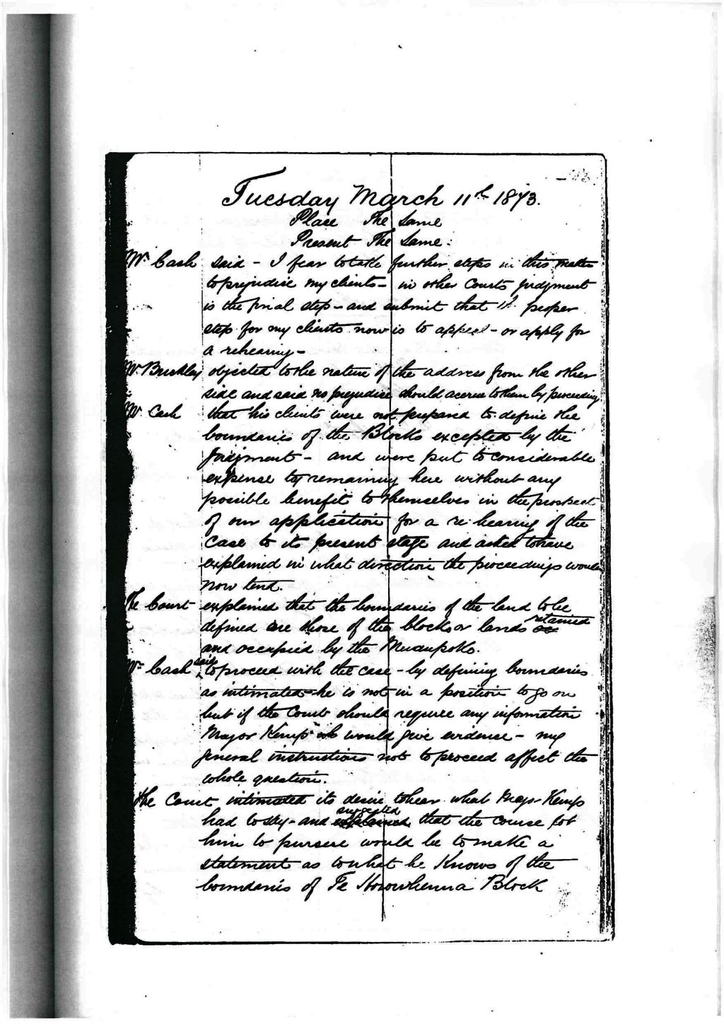 Tuesday March 11th 1873.
Place The Same
Present The Same:
Mr Cash said - I fear to take further steps in this matter
to prejudice my clients - in other Courts judgment
is the final step - and submit that proper
step for my clients now is to appeal - or apply for
a rehearing -
Mr Buckley objected to the nature of the address from the other
side and said no prejudice should accrue to them by proceeding
Mr Cash that his clients were not prepared to define the
boundaries of the Blocks excepted by the
Judgment - and were put to considerable
expense by remaining here without any
possible benefit to themselves in the prospect
of our application for a re-hearing of the
Case to its present stage and asked to have
explained in what direction the proceedings would
now tend.
The Court explained that the boundaries of the land to be
defined are those of the blocks or lands retained
and occupied by the Muaupoko.
Mr Cash said to proceed with the case - by defining boundaries
as intimated - he is not in a position to go on
but if the Court should require any information
Major Kemp would give evidence - my
general instructions not to proceed affect the
whole question.
The Court intimated its desire to hear what Major Kemp
had to say - and suggested that the course for
him to pursue would be to make a
statement as to what he Knows of the
boundaries of Te Horowhenua Block